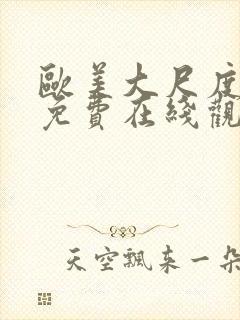 歐美大尺度
免費在綫觀
天空飄来一朵